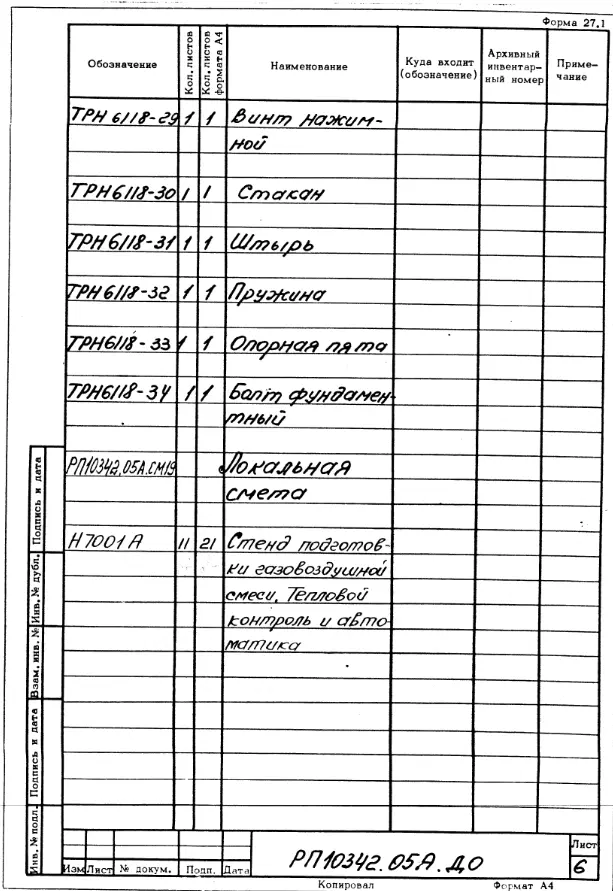 Форма 27.1
Обозначение
Кол. листов
Кол. листов формата А4
Наименование
Куда входит (обозначение)
Архивный инвентарный номер
Примечание
ТРН 6118-29 1 1 Винт нажим-
ной
ТРН6118-30 1 1 Стакан
ТРН6118-31 1 1 Штырь
ТРН6118-32 1 1 Пружина
ТРН6118-33 1 1 Опорная пята
ТРН6118-34 1 1 Болт фундамен-
тный
РП10342.05А.СМ19 Локальная
смета
Н7001А 11 21 Стенд подготов-
ки газовоздушной
смеси. Тепловой
контроль и авто-
матика
Подпись и дата
Инв. № дубл.
Взам. инв. №
Подпись и дата
Инв. № подл.
Изм Лист № докум. Подп. Дата
РП10342.05А.ДО
Лист
6
Копировал Формат А4